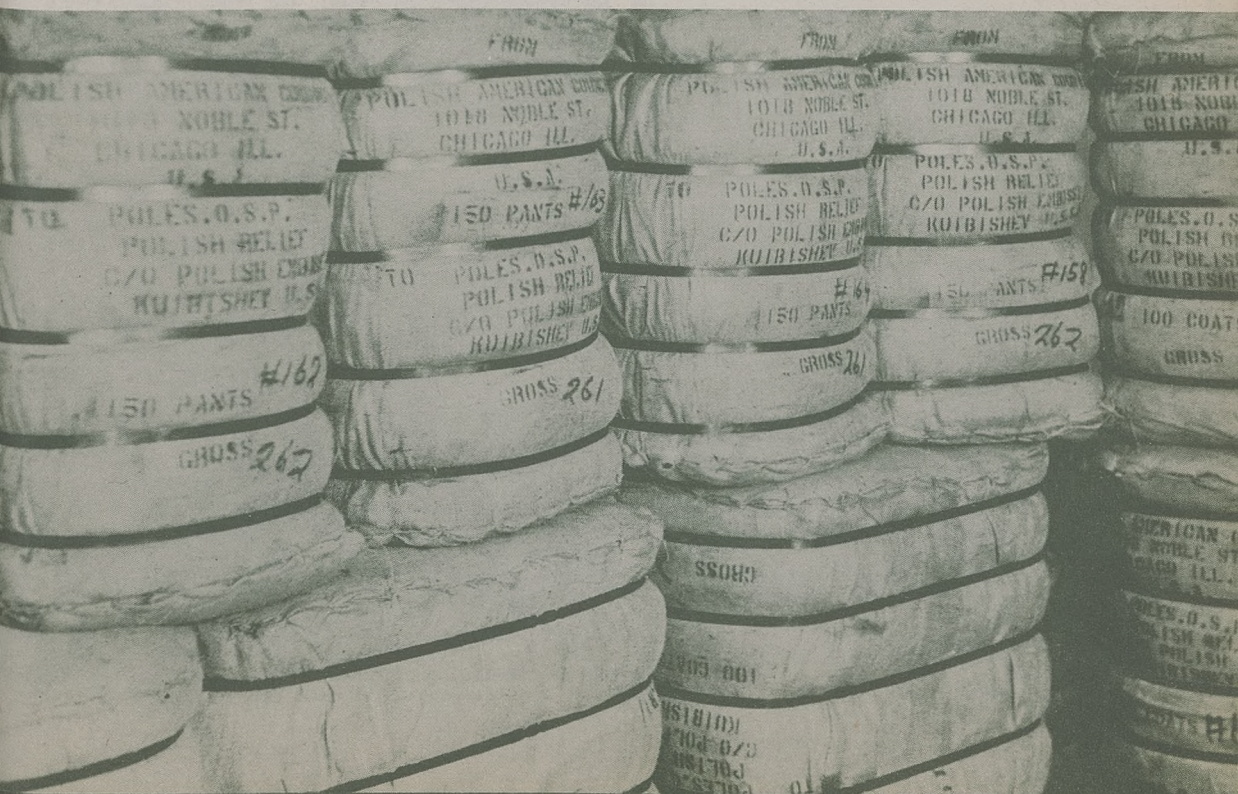 FROM
POLISH AMERICAN
NOBLE ST.
CHICAGO ILL.
U.S.A.
TO POLES.O.S.P.
POLISH RELIEF
C/O POLISH
KUIBISHEV U.S
#162
150 PANTS
GROSS 262
FROM
POLISH AMERICAN
1018 NOBLE ST.
CHICAGO ILL.
U.S.A.
150 PANTS #163
TO POLES.O.S.P.
POLISH RELIEF
C/O POLISH
KUIBISHEV U.S
GROSS 261
FROM
POLISH AMERICAN
1018 NOBLE ST.
CHICAGO ILL.
U.S.A.
TO POLES.O.S.P.
POLISH RELIEF
C/O POLISH
KUIBISHEV U.S
#164
150 PANTS
GROSS 261
FROM
POLISH AMERICAN
1018 NOBLE ST.
CHICAGO ILL.
U.S.A.
TO POLES.O.S.P.
POLISH RELIEF
C/O POLISH
KUIBISHEV U.S.S
150 PANTS #158
GROSS 262
FROM
AMERIC
1018 NOBL
CHICAGO
U.S.
POLES.O.S
POLISH
C/O POLIS
KUIBISHE
100 COATS
GROSS
GROSS
100 COATS
KUIBISH
C/O POL
POLISH
POLES
TO
AMERICAN
NOBLE ST
ILL.
POLES.O.S.
POLISH
COATS